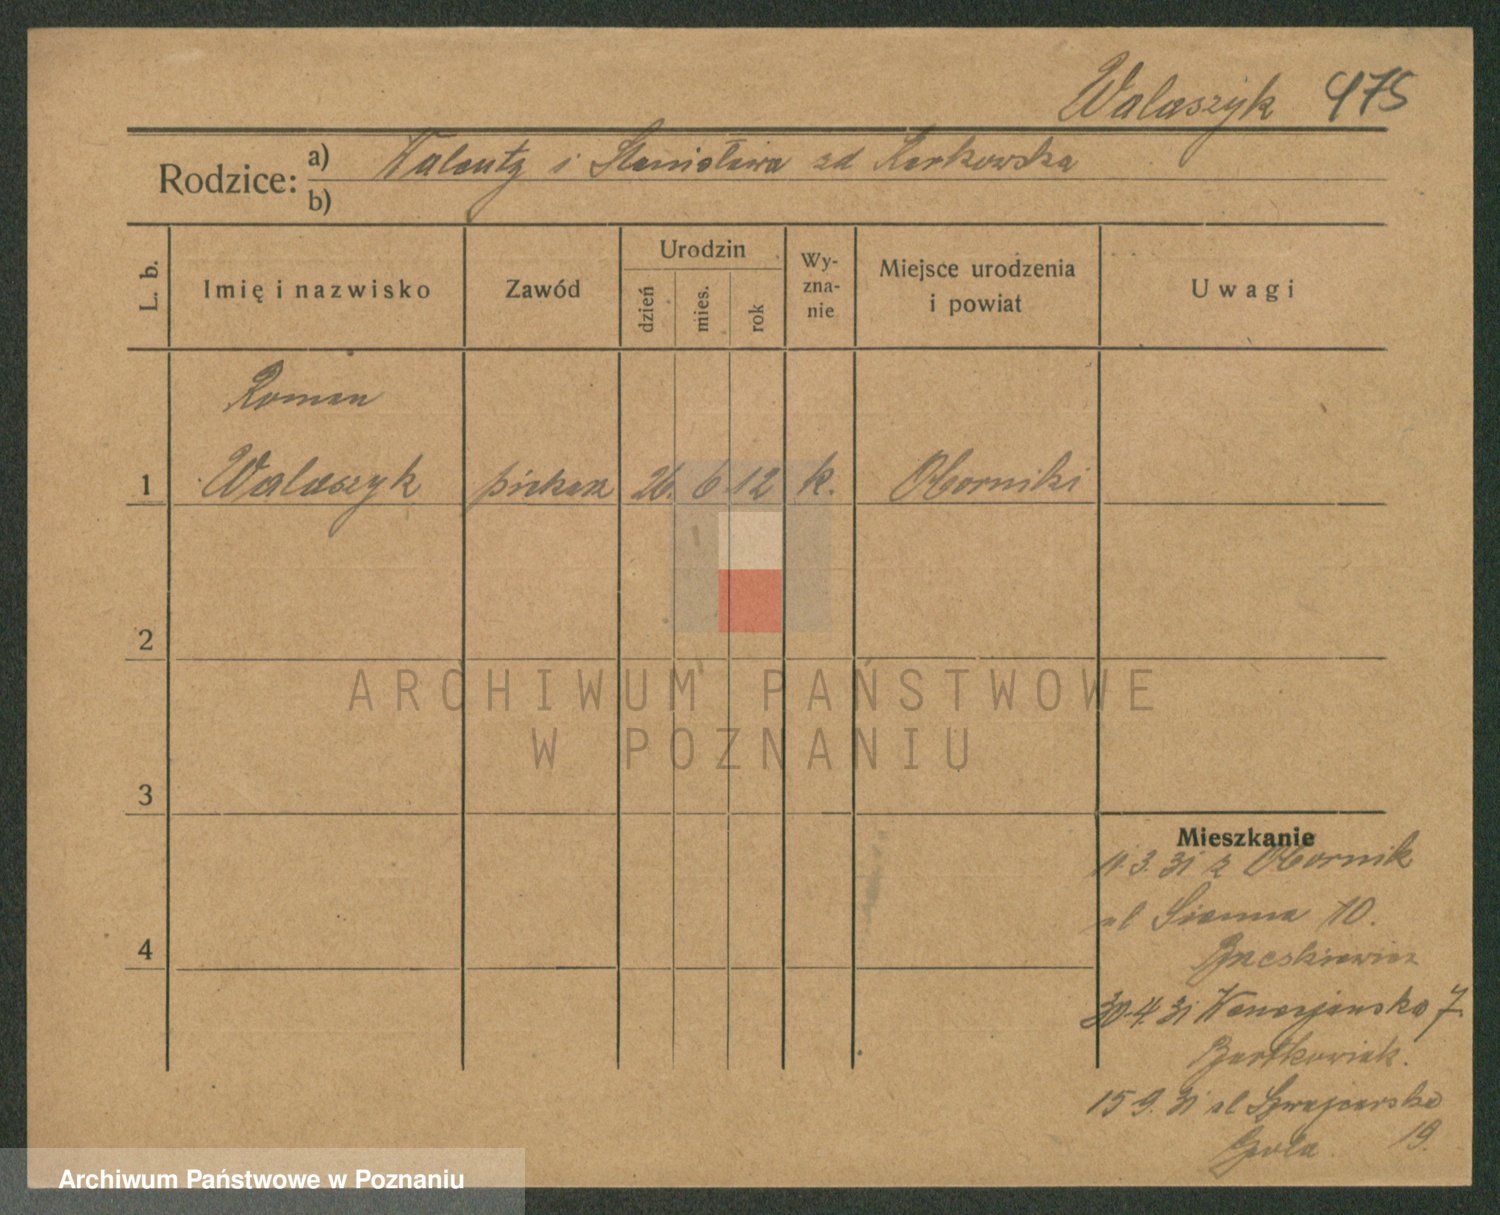 Walaszyk 475
Rodzice: a) Walenty i Stanisława zd Karkowska
b)
L. b.
Imię i nazwisko
Zawód
Urodzin
dzień
mies.
rok
Wy-
zna-
nie
Miejsce urodzenia
i powiat
Uwagi
Roman
1 Walaszyk piekarz 26. 6. 12 k. Oborniki
2
ARCHIWUM PAŃSTWOWE
W POZNANIU
3
Mieszkanie
11.3.31 z Obornik
4
ul Sienna 10.
30.4.31 7.
Bartkowiak.
15 9. 31 ul Szwajcarska
19.
Archiwum Państwowe w Poznaniu